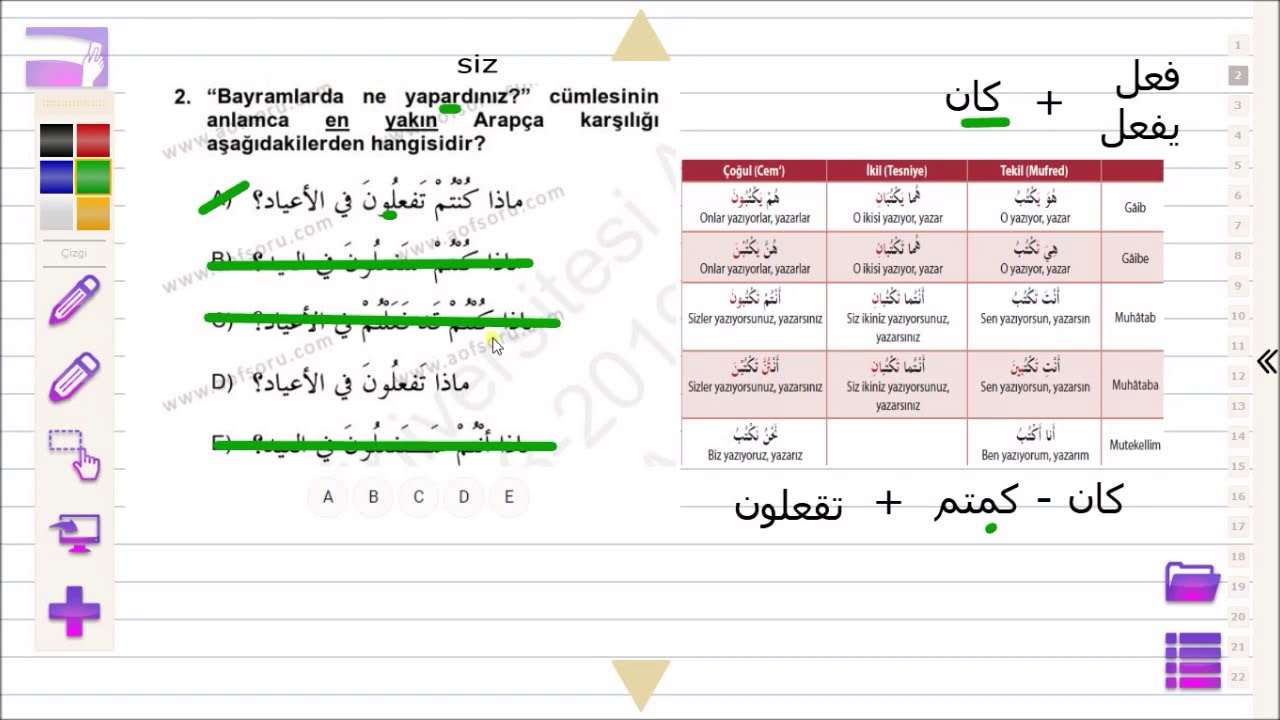 siz
2. “Bayramlarda ne yapardınız?” cümlesinin
anlamca en yakın Arapça karşılığı
aşağıdakilerden hangisidir?
A) ماذا كُنْتُمْ تَفعلُونَ في الأعياد؟
D) ماذا تَفعلُونَ في الأعياد؟
A B C D E
فعل
كان +
يفعل
Çoğul (Cem') İkil (Tesniye) Tekil (Mufred)
هُمْ يَكْتُبُونَ هُما يَكْتُبَانِ هُوَ يَكْتُبُ
Onlar yazıyorlar, yazarlar O ikisi yazıyor, yazar O yazıyor, yazar Gâib
هُنَّ يَكْتُبْنَ هُما تَكْتُبَانِ هِيَ تَكْتُبُ
Onlar yazıyorlar, yazarlar O ikisi yazıyor, yazar O yazıyor, yazar Gâibe
أَنْتُمْ تَكْتُبُونَ أَنْتُما تَكْتُبَانِ أَنْتَ تَكْتُبُ
Sizler yazıyorsunuz, yazarsınız Siz ikiniz yazıyorsunuz, yazarsınız Sen yazıyorsun, yazarsın Muhâtab
أَنْتُنَّ تَكْتُبْنَ أَنْتُما تَكْتُبَانِ أَنْتِ تَكْتُبِينَ
Sizler yazıyorsunuz, yazarsınız Siz ikiniz yazıyorsunuz, yazarsınız Sen yazıyorsun, yazarsın Muhâtaba
نَحْنُ نَكْتُبُ أَنا أَكْتُبُ
Biz yazıyoruz, yazarız Ben yazıyorum, yazarım Mutekellim
كان - كمتم + تقعلون
Çizgi
1
2
3
4
5
6
7
8
9
10
11
12
13
14
15
16
17
18
19
20
21
22
www.aofsoru.com
www.aofsoru.com
www.aofsoru.com
www.aofsoru.com
www.aofsoru.com